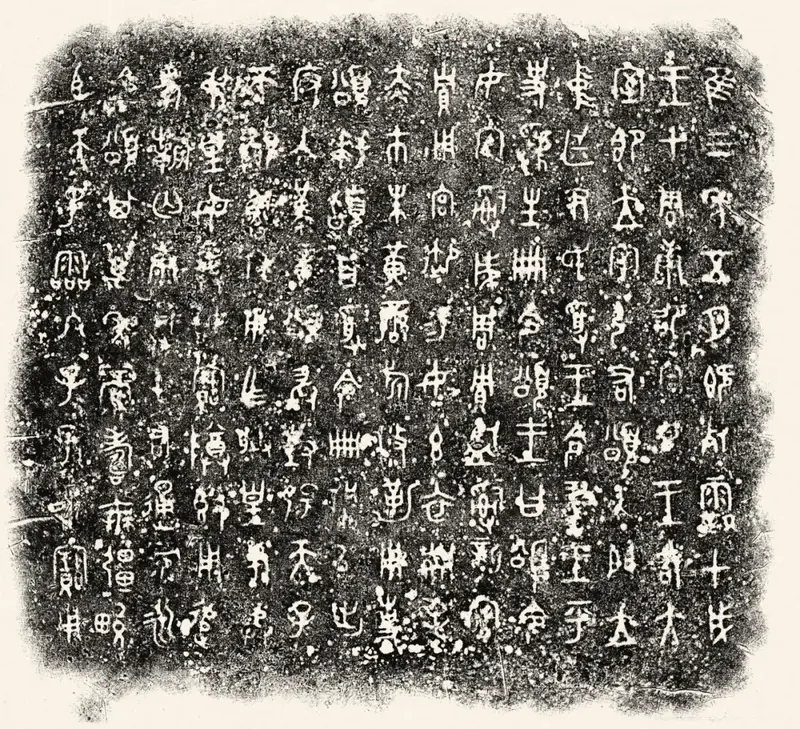 隹三年五月既死霸甲戌
王才周康邵宮旦王各大
室即立宰引右頌入門立
中廷尹氏受王令書王乎
史虢生冊令頌王曰頌令
女官𤔲成周貯監𤔲新造
貯用宮御易女玄衣黹屯
赤巿朱黃䜌旂攸勒用事
頌拜𩒨首受令冊佩以出
反入堇章頌敢對揚天子
不顯魯休用乍朕皇考龏
弔皇母龏姒寶尊𣪘用追
孝祈匄康虞屯右通彔永
令頌其萬年眉壽無疆畯
臣天子霝冬子孫永寶用